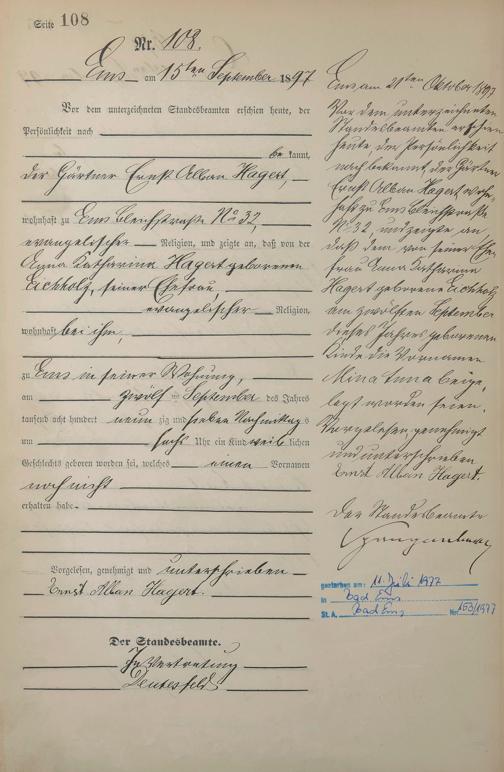 Seite 108
Nr. 108.
Ems am 15ten September 1897
Vor dem unterzeichneten Standesbeamten erschien heute, der
Persönlichkeit nach
be kannt,
der Gärtner Ernst Alban Hagert,
wohnhaft zu Ems Bleichstraße No 32,
evangelischer Religion, und zeigte an, daß von der
Anna Katharina Hagert geborenen
Eichholz, seiner Ehefrau,
evangelischer Religion,
wohnhaft bei ihm,
zu Ems in seiner Wohnung,
am zwölf ten September des Jahres
tausend acht hundert neun zig und sieben Nachmittags
um sechs Uhr ein Kind weib lichen
Geschlechts geboren worden sei, welches einen Vornamen
noch nicht
erhalten habe.
Vorgelesen, genehmigt und unterschrieben
Ernst Alban Hagert.
Der Standesbeamte.
In Vertretung
Ems am 21ten Oktober 1897
Vor dem unterzeichneten
Standesbeamten erschien
heute, der Persönlichkeit
nach bekannt, der Gärtner
Ernst Alban Hagert, wohn-
haft zu Ems Bleichstraße
No 32, und zeigte an,
daß dem von seiner Ehe
frau Anna Katharina
Hagert geborene Eichholz
am zwölften September
dieses Jahres geborenen
Kinde die Vornamen
Mina Anna beige,
legt worden seien.
Vorgelesen, genehmigt
und unterschrieben
Ernst Alban Hagert.
Der Standesbeamte
gestorben am: 11. Juli 1977
in Bad Ems
St. A. Bad Ems Nr. 153/1977